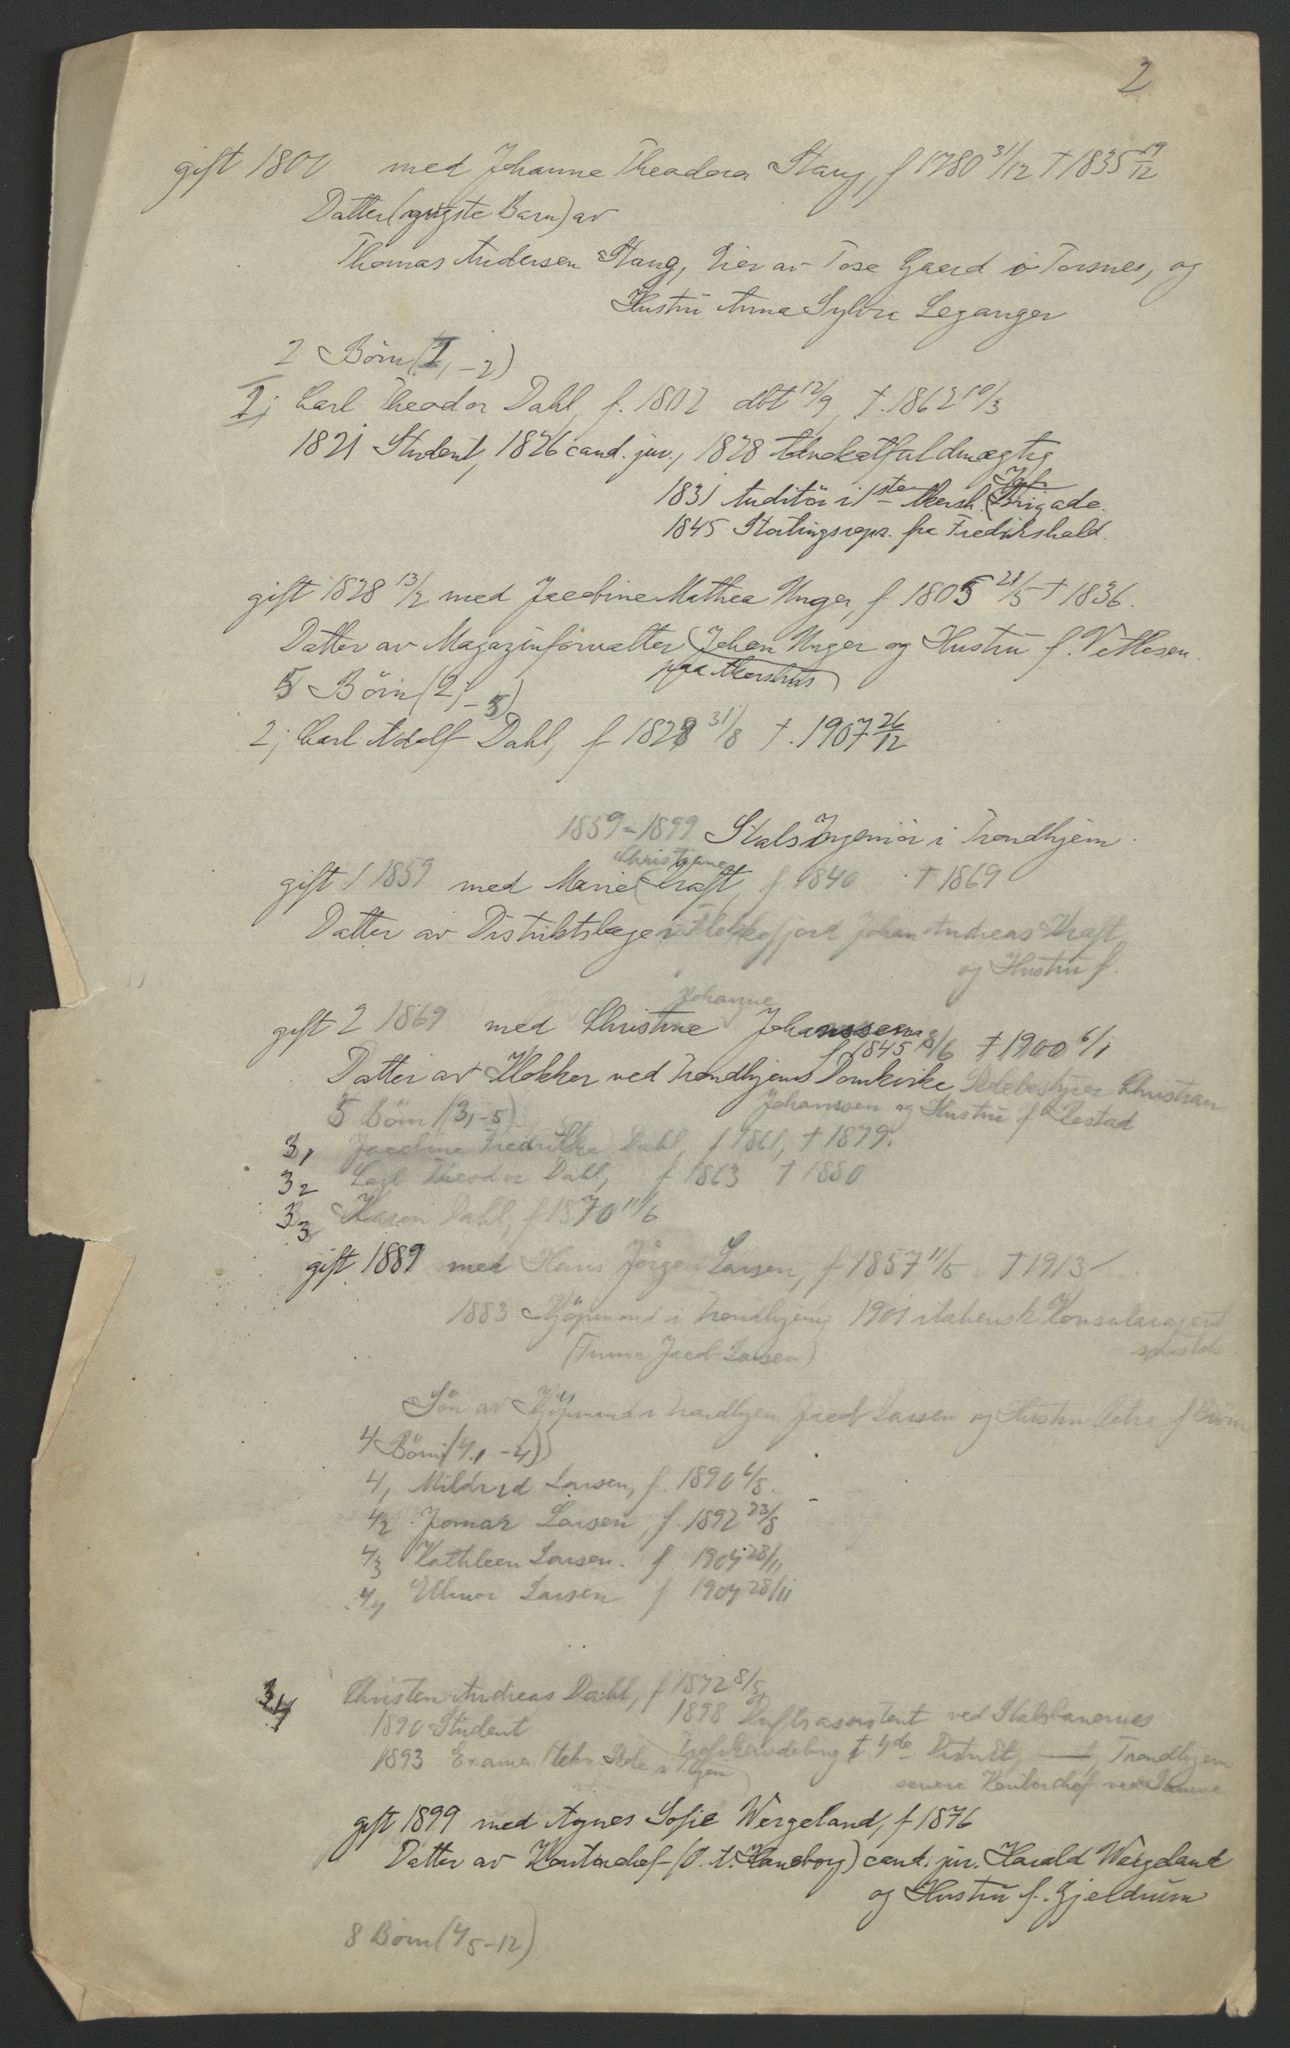 2
gift 1800 med Johanne Theodora Stang, f 1780 31/12 † 1835 19/12
Datter (eneste Barn) av
Thomas Andersen Stang, Eier av Tose Gaard i Torsnes, og
Hustru Anna Sylvia Leganger
2 Börn (1, -2)
1; Carl Theodor Dahl, f. 1802 dbt 12/9, †. 1862 10/3
1821 Student, 1826 cand. jur., 1828 Advokatfuldmægtig
1831 Auditör i 1ste Akersh. Inf. Brigade.
1845 Stortingsrepr. fra Fredrikshald.
gift 1828 13/2 med Jacobine Mathea Unger, f 1805 28/5 † 1836.
Datter av Magazinforvalter (paa Akershus) Johan Unger og Hustru f. Vetlesen.
5 Börn (2, -5)
2; Carl Adolf Dahl, f 1828 31/8 †. 1907 26/12
1859-1899 Statsingeniör i Trondhjem.
gift 1 1859 med Marie Christiane Kraft, f 1840 † 1869
Datter av Distriktslæge i Flekkefjord Johan Andreas Kraft
og Hustru f.
gift 2 1869 med Christine Johanne Johanssen
f 1845 18/6 † 1900 6/1
Datter av Klokker ved Trondhjems Domkirke, Skolebestyrer Christian
Johanssen og Hustru f. Restad
5 Börn (3, -5)
3, Jacobine Fredrikke Dahl, f 1861, † 1879.
3 2 Carl Theodor Dahl, f 1863 † 1880
3 3 Karen Dahl, f 1870 11/6
gift 1889 med Hans Jörgen Larsen, f 1857 11/5 † 1913
1883 Kjöpmand i Trondhjem, 1901 italiensk Konsularagent
sammesteds
(Firma Jacob Larsen)
Sön av Kjöpmand i Trondhjem Jacob Larsen og Hustru f
4 Börn (4, -4)
4, Mildrid Larsen, f. 1890 6/8.
4 2 Jomar Larsen, f. 1892 23/8
4 3 Kathleen Larsen. f 1904 28/11
4 4 Ellinor Larsen f 1904 28/11
3 4 Christen Andreas Dahl, f 1872 8/5
1890 Student 1898 Driftsassistent ved Statsbanernes
1893 Examen tekn. Skole i Thjem Trafikavdeling 4de Distrikt, Trondhjem
senere Kontorchef ved samme
gift 1899 med Agnes Sofie Wergeland, f 1876
Datter av Kontorchef (O. t. Haneborg) cand. jur. Harald Wergeland
og Hustru f. Gjeldrum
8 Börn (4 5-12)